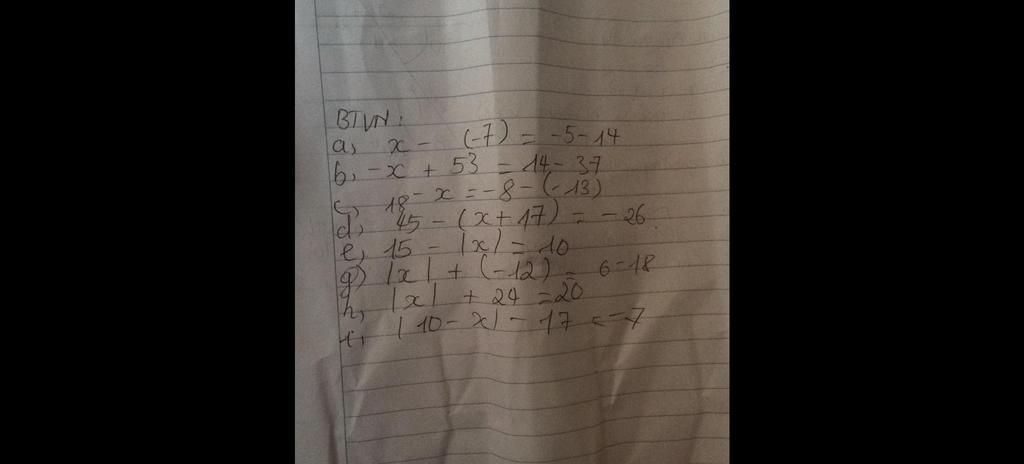 BTVN:
a, x - (-7) = -5-14
b, -x + 53 = 14 - 37
c, 18 - x = -8 - (-13)
d, 45 - (x + 17) = -26
e, 15 - |x| = 10
g) |x| + (-12) = 6-18
h, |x| + 24 = 20
i, |10 - x| - 17 = -7